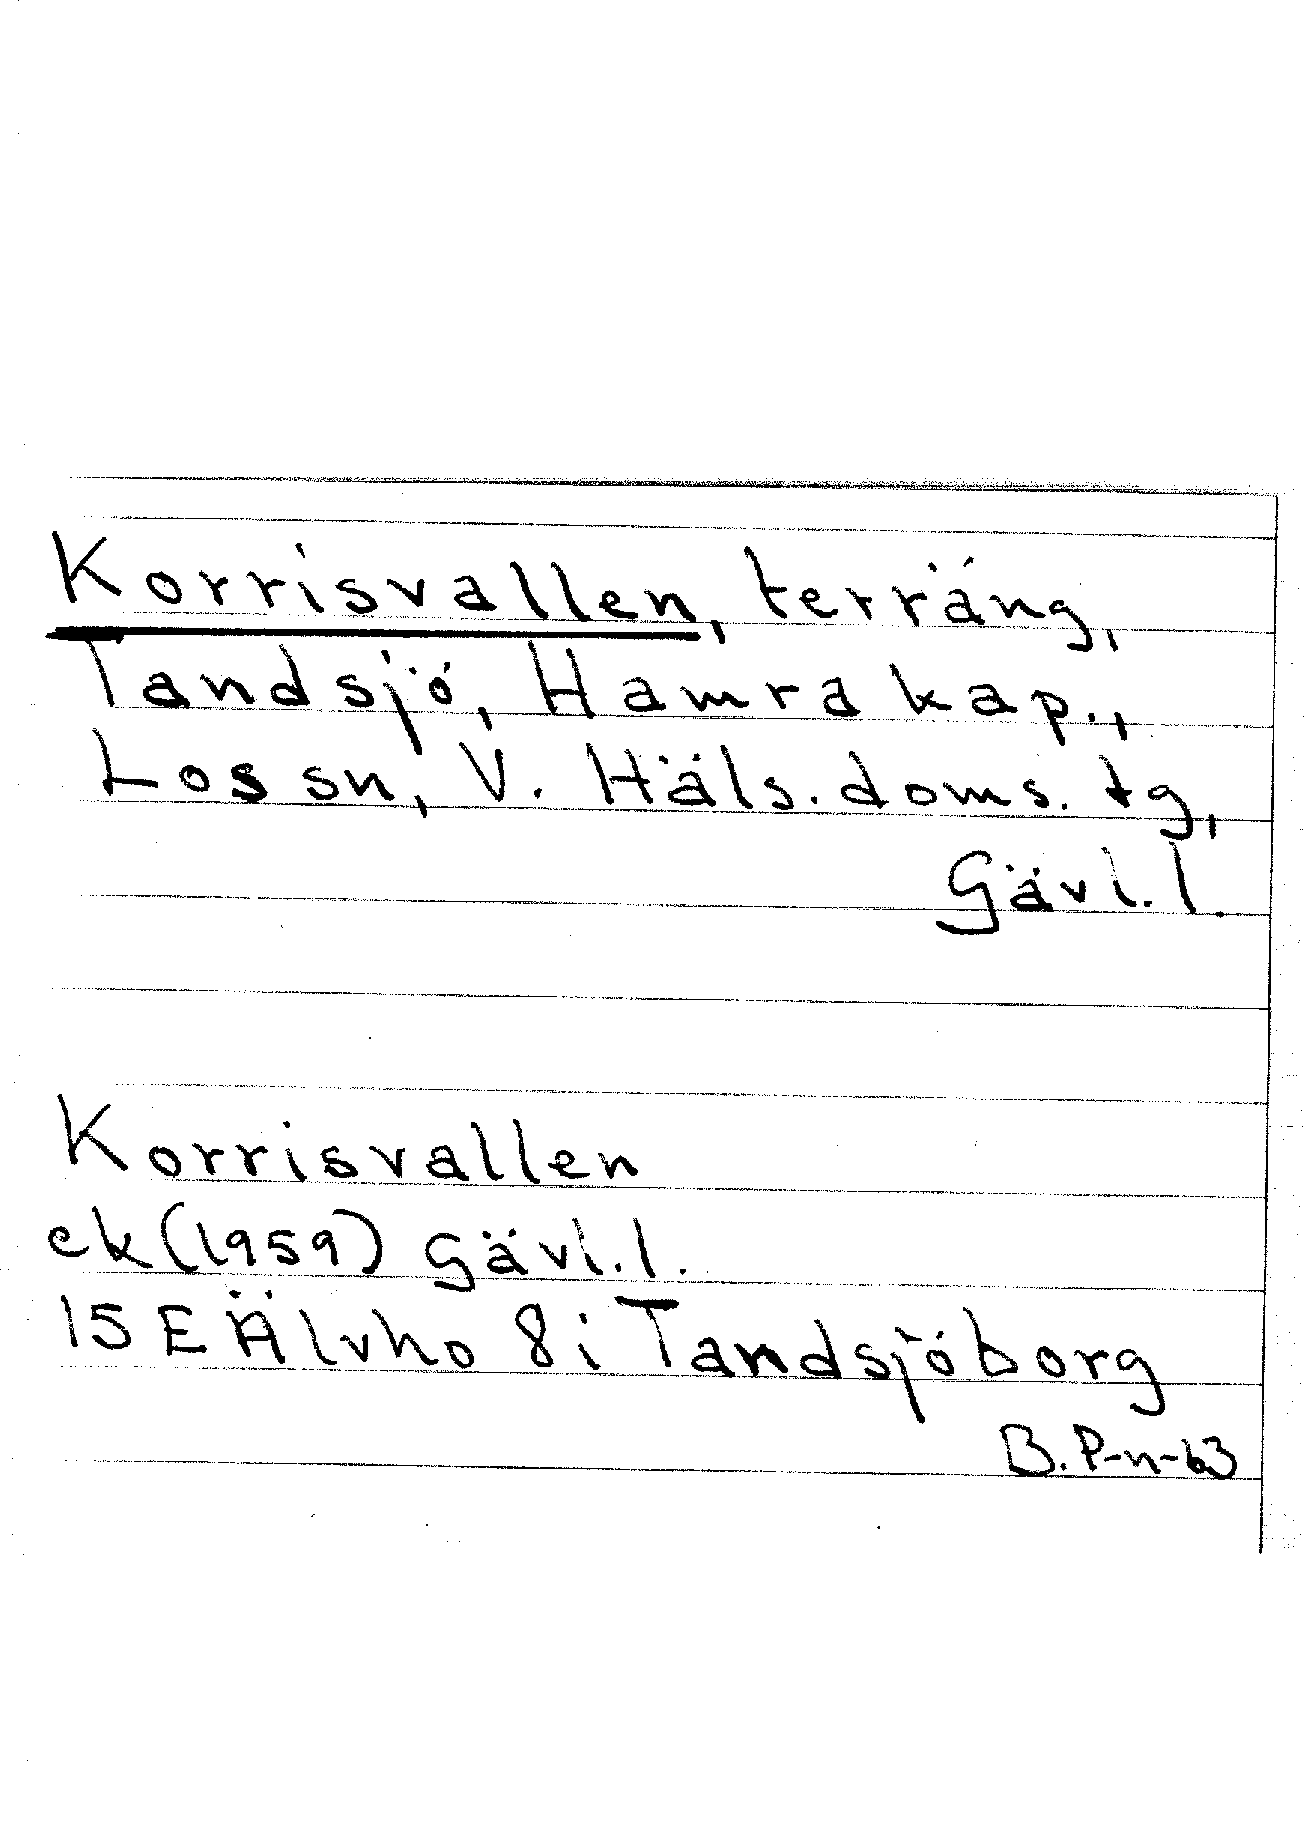 Korrisvallen, terräng,
Tandsjö, Hamra kap.,
Los sn, V. Häls. doms. tg,
Gävl. l.
Korrisvallen
ek (1959) Gävl. l.
15 E Älvho 8 i Tandsjöborg
B. P-n-63